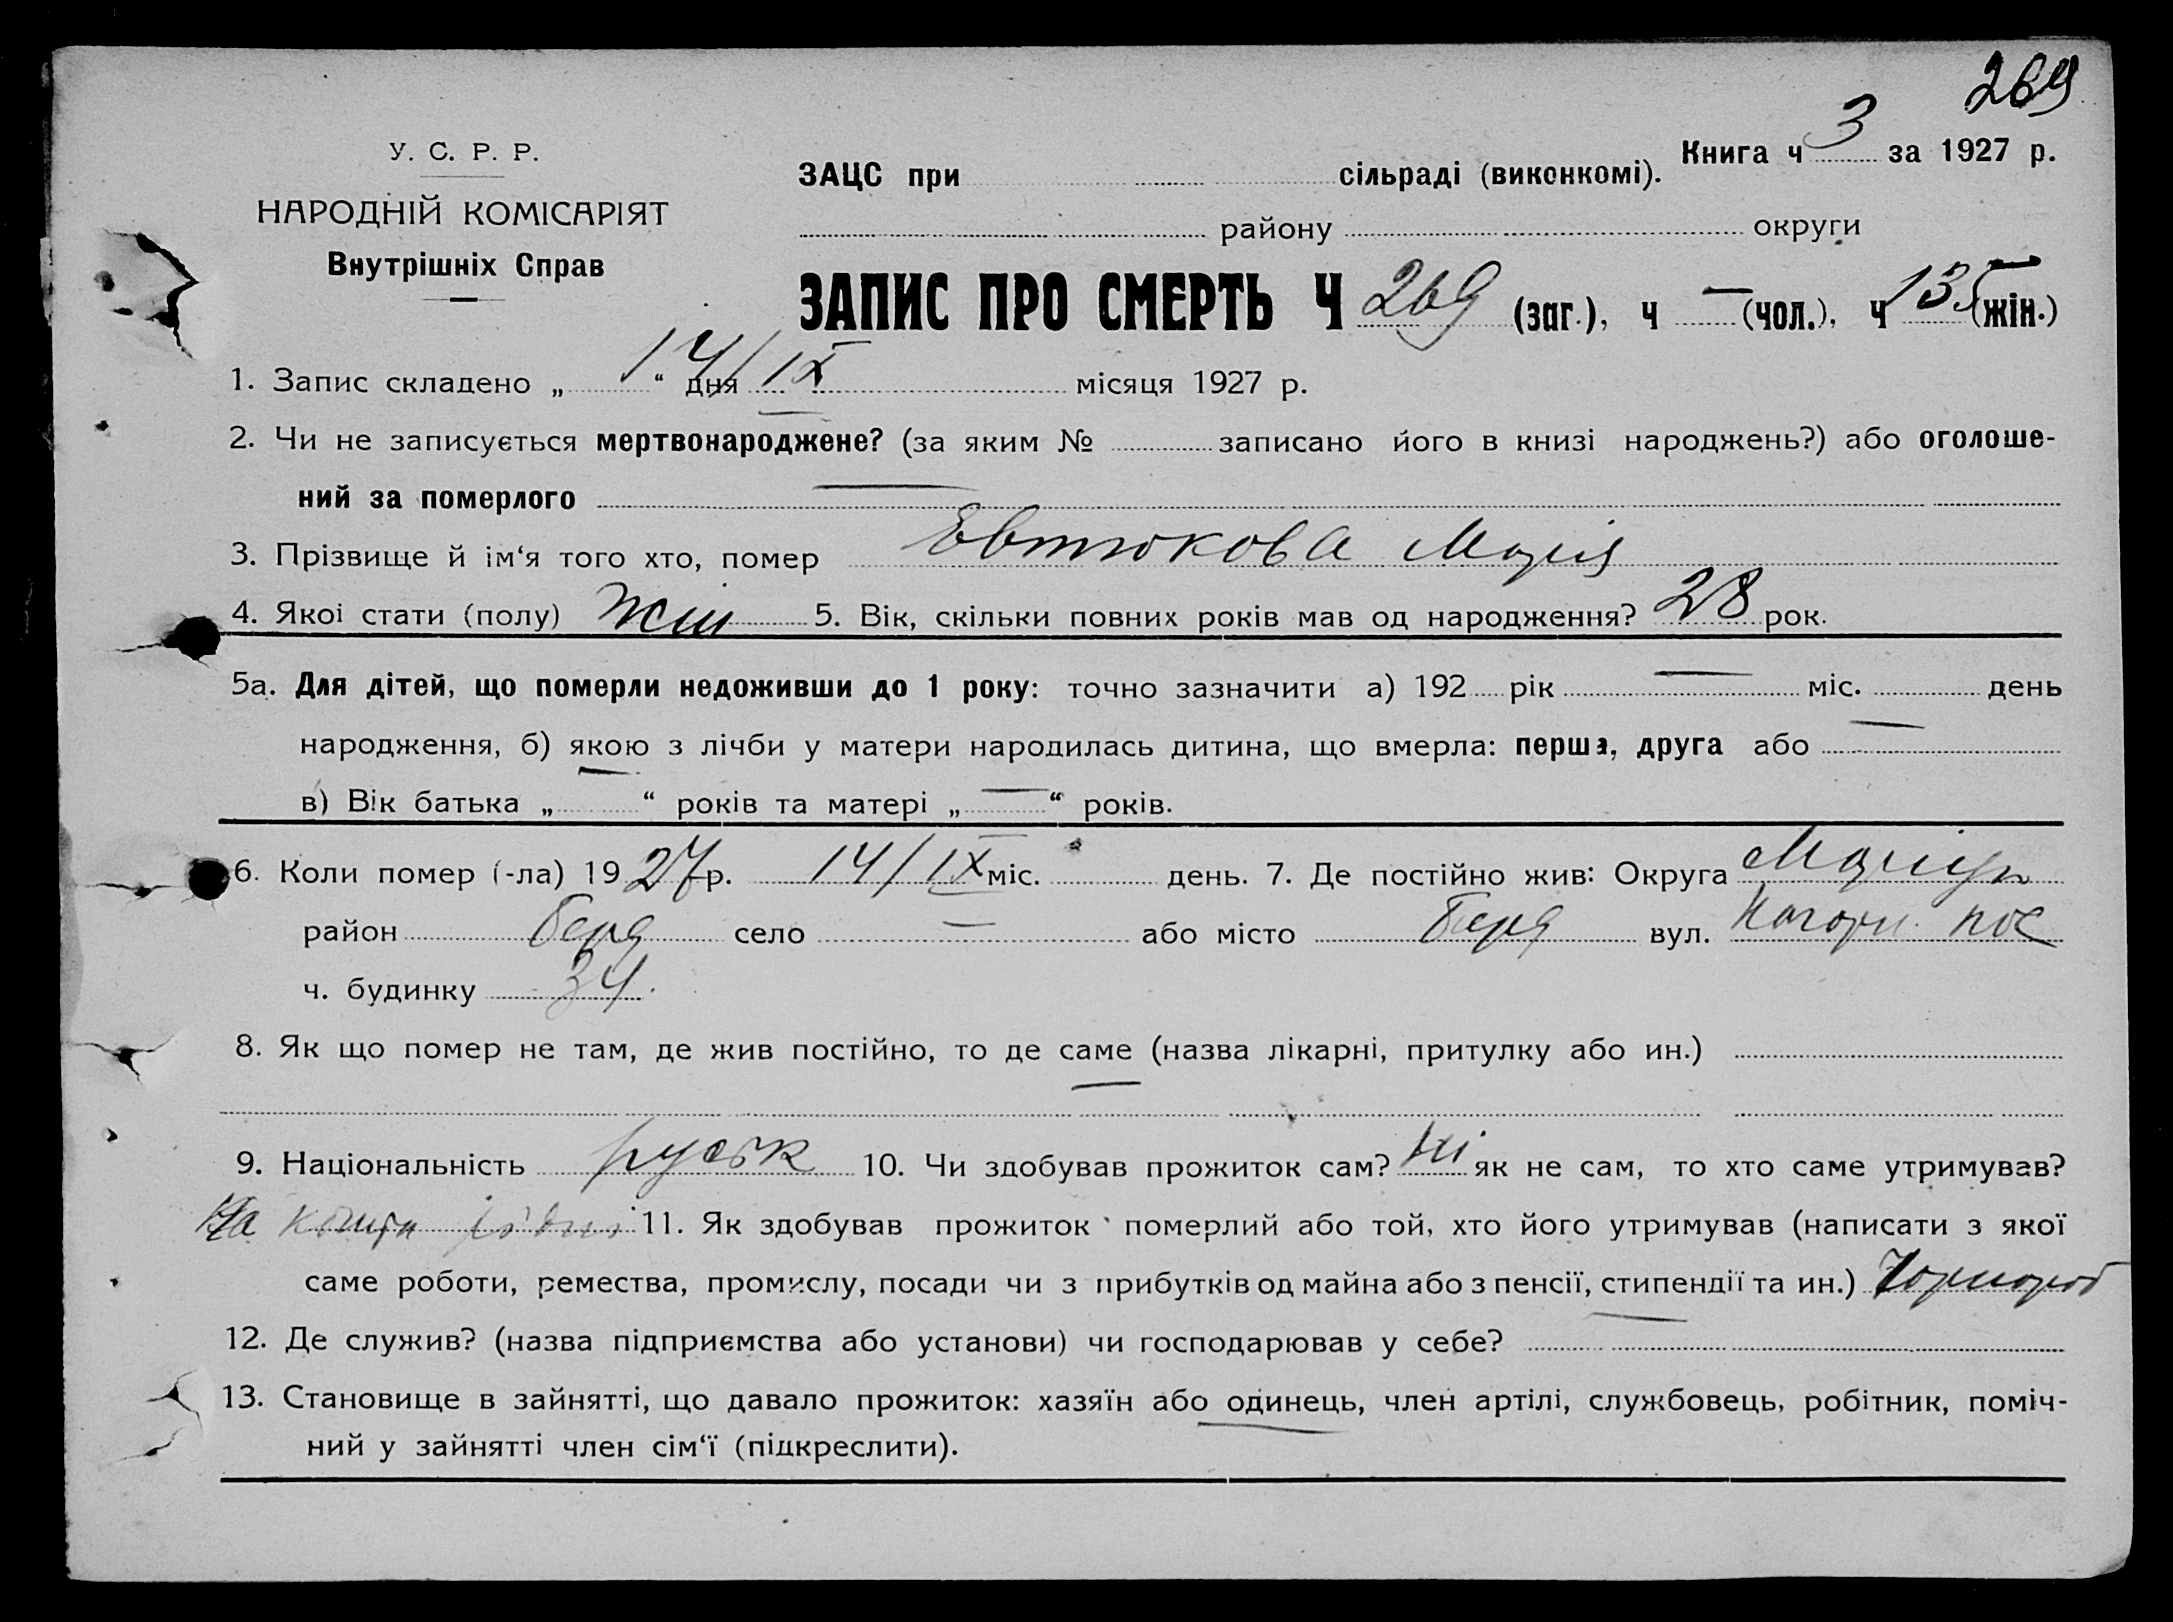 269
У. С. Р. Р.
НАРОДНІЙ КОМІСАРІЯТ
Внутрішніх Справ
Книга ч 3 за 1927 р.
ЗАЦС при сільраді (виконкомі).
району округи
ЗАПИС ПРО СМЕРТЬ Ч 269 (заг.), ч — (чол.), ч 135 (жін.)
1. Запис складено „ 14/ “ дня IX місяця 1927 р.
2. Чи не записується мертвонароджене? (за яким № записано його в книзі народжень?) або оголоше-
ний за померлого —
3. Прізвище й ім‘я того хто, помер Евтюкова Марія
4. Якоі стати (полу) Жін 5. Вік, скільки повних років мав од народження? 28 рок.
5а. Для дітей, що померли недоживши до 1 року: точно зазначити а) 192 рік — міс. день
народження, б) якою з лічби у матери народилась дитина, що вмерла: перша, друга або —
в) Вік батька „ — “ років та матері „ — “ років.
6. Коли помер (-ла) 1927 р. 14/IX міс. день. 7. Де постійно жив: Округа Маріуп
район Берд село — або місто Берд вул. Нагорн. пос
ч. будинку 34.
8. Як що помер не там, де жив постійно, то де саме (назва лікарні, притулку або ин.)
—
9. Національність руськ 10. Чи здобував прожиток сам? Ні як не сам, то хто саме утримував?
На кошти 11. Як здобував прожиток померлий або той, хто його утримував (написати з якої
саме роботи, ремества, промислу, посади чи з прибутків од майна або з пенсії, стипендії та ин.) Чорнороб
12. Де служив? (назва підприємства або установи) чи господарював у себе? —
13. Становище в зайнятті, що давало прожиток: хазяїн або одинець, член артілі, службовець, робітник, поміч-
ний у зайнятті член сім‘ї (підкреслити).